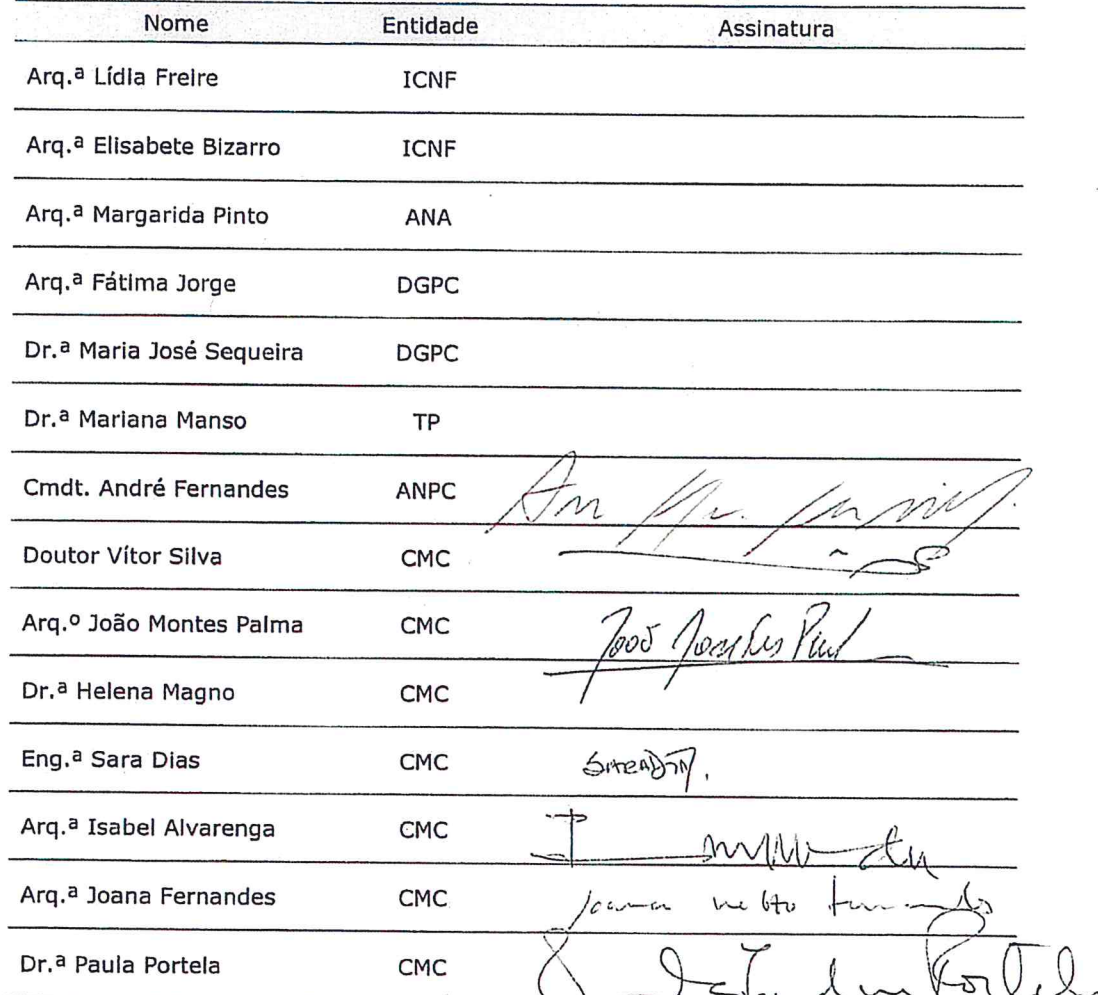 Nome Entidade Assinatura
Arq.ª Lídia Freire ICNF
Arq.ª Elisabete Bizarro ICNF
Arq.ª Margarida Pinto ANA
Arq.ª Fátima Jorge DGPC
Dr.ª Maria José Sequeira DGPC
Dr.ª Mariana Manso TP
Cmdt. André Fernandes ANPC
Doutor Vítor Silva CMC
Arq.º João Montes Palma CMC João
Dr.ª Helena Magno CMC
Eng.ª Sara Dias CMC
Arq.ª Isabel Alvarenga CMC
Arq.ª Joana Fernandes CMC Joana
Dr.ª Paula Portela CMC